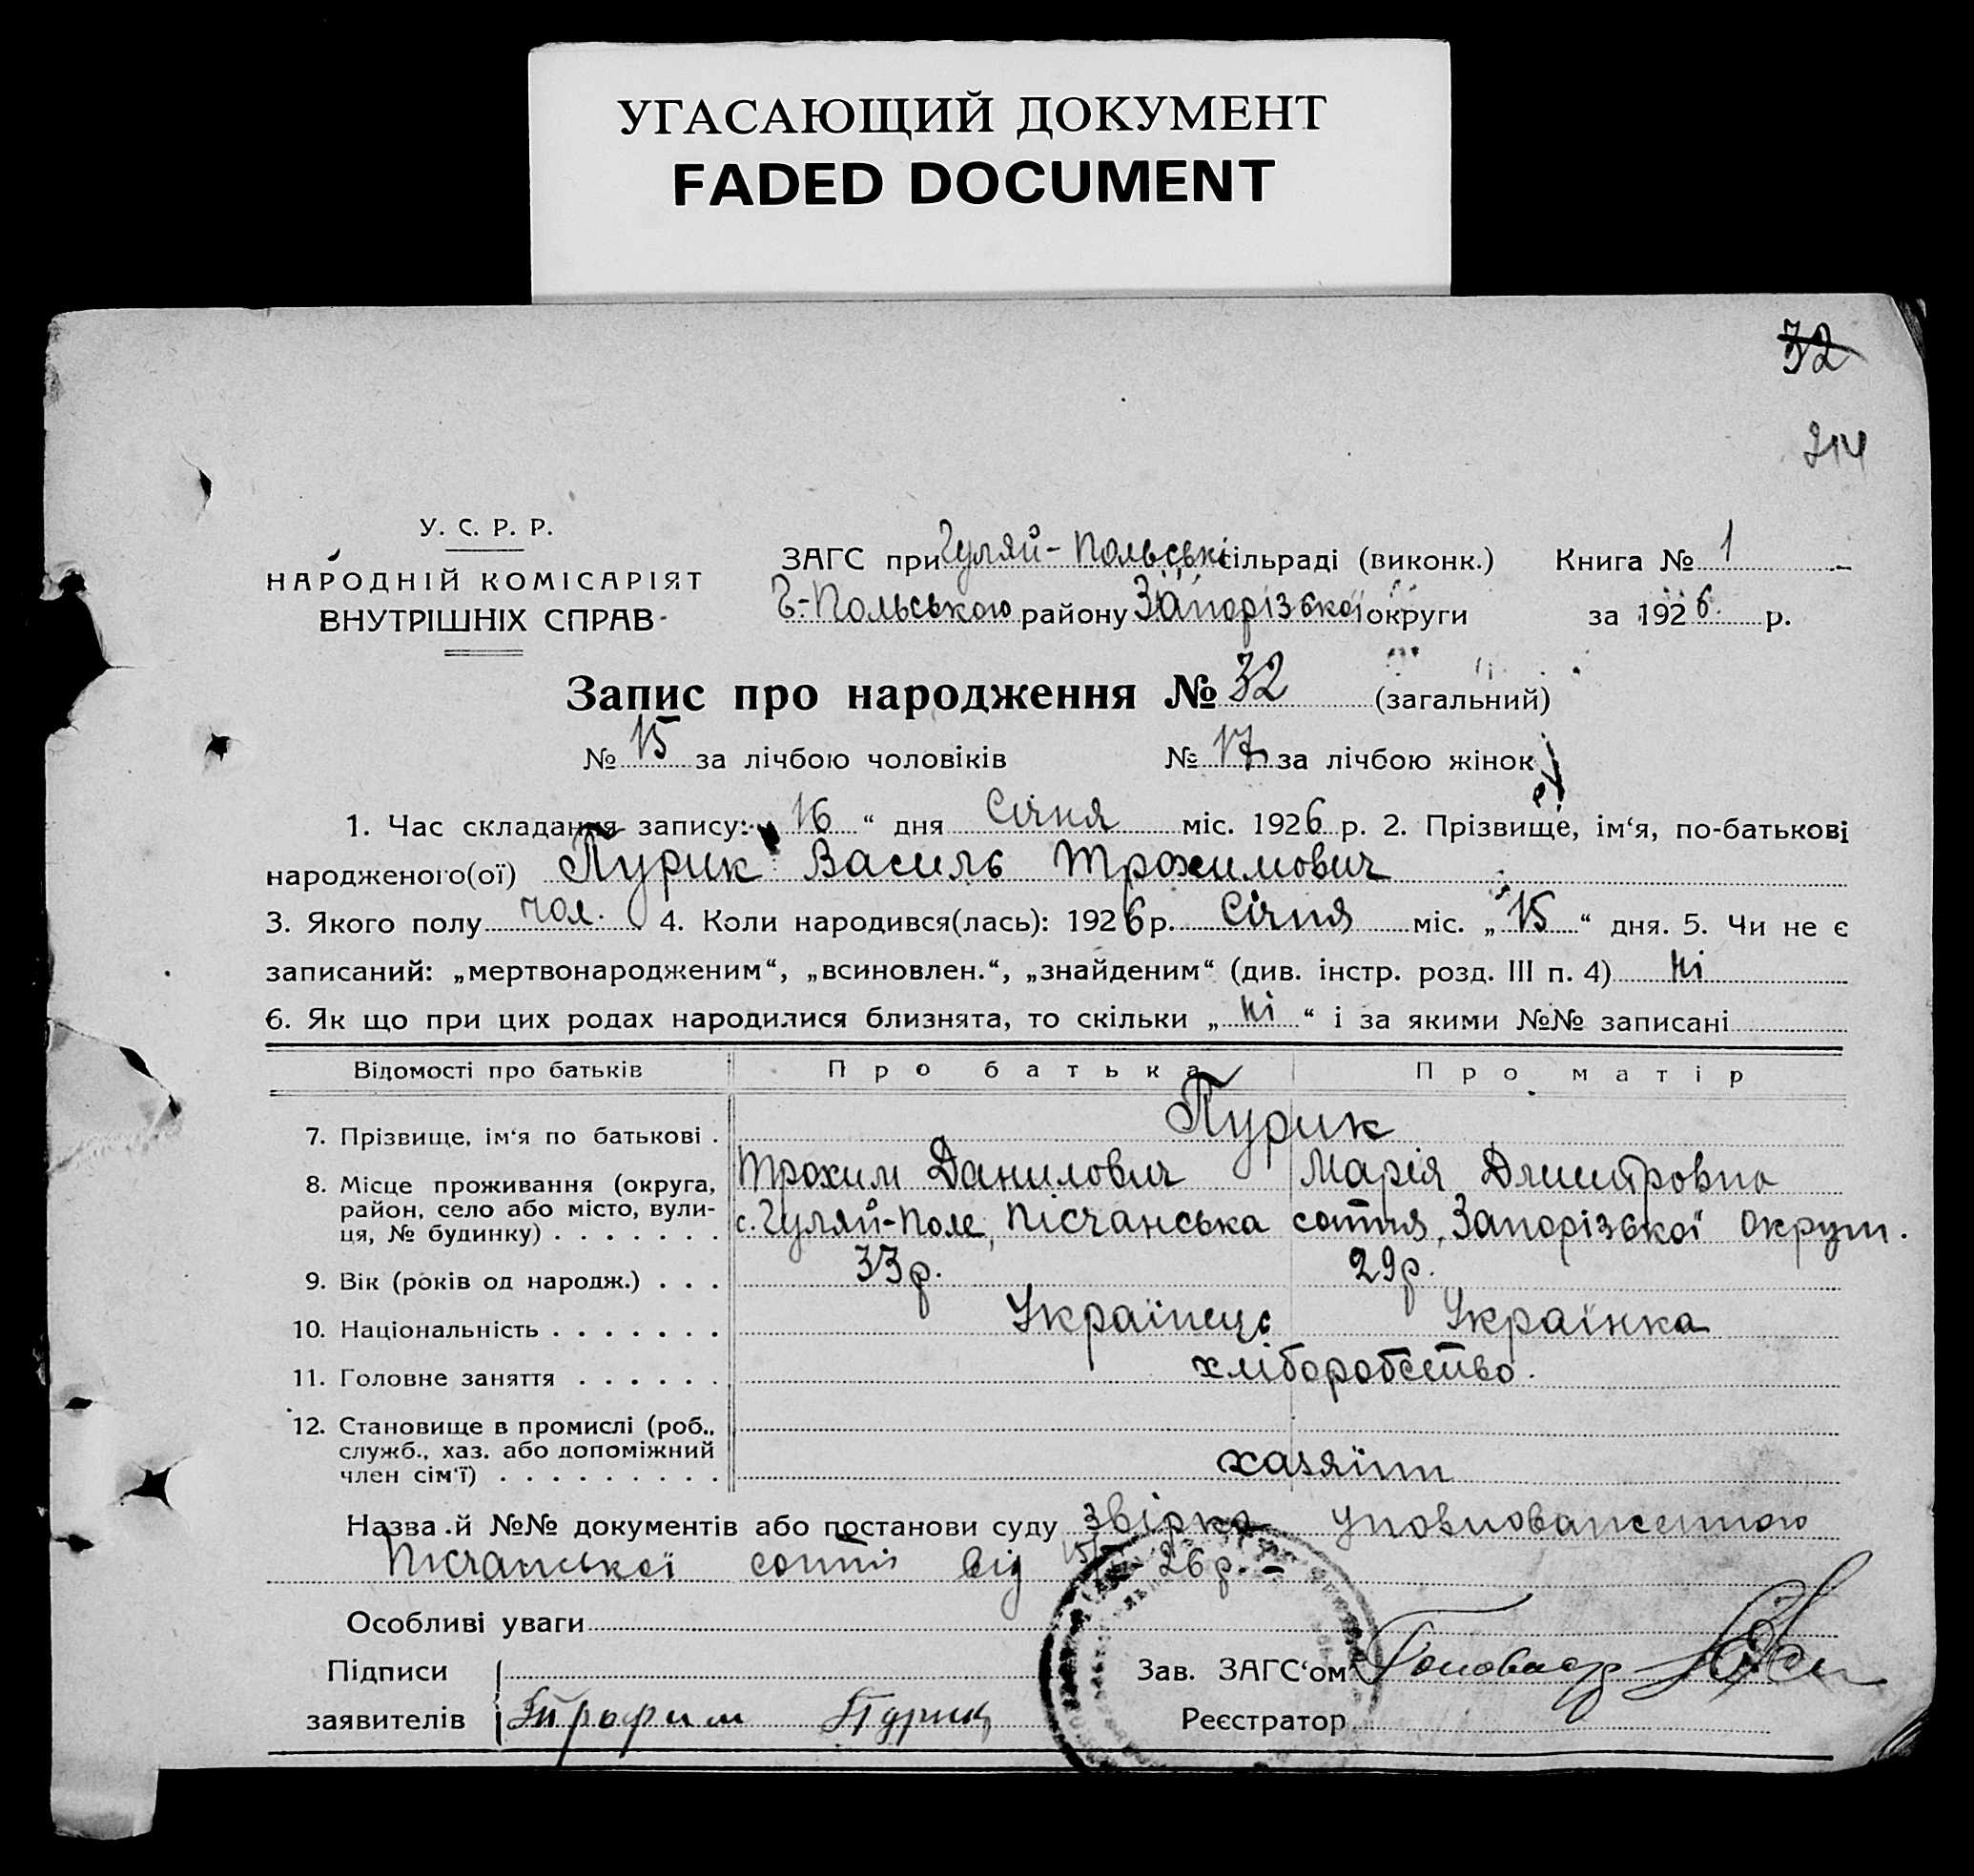 УГАСАЮЩИЙ ДОКУМЕНТ
FADED DOCUMENT
32
214
У. С. Р. Р.
НАРОДНІЙ КОМІСАРІЯТ
ВНУТРІШНІХ СПРАВ
ЗАГС при Гуляй-Польські сільраді (виконк.) Книга № 1
Г-Польського району Запорізької округи за 1926 р.
Запис про народження № 32 (загальний)
№ 15 за лічбою чоловіків № 17 за лічбою жінок
1. Час складання запису: „16“ дня Січня міс. 1926 р. 2. Прізвище, ім‘я, по-батькові
народженого(ої) Пурик Василь Трохимович
3. Якого полу чол. 4. Коли народився(лась): 1926 р. Січня міс. „15“ дня. 5. Чи не є
записаний: „мертвонародженим“, „всиновлен.“, „знайденим“ (див. інстр. розд. III п. 4) ні
6. Як що при цих родах народилися близнята, то скільки „ні“ і за якими №№ записані
Відомості про батьків Про батька Про матір
7. Прізвище, ім‘я по батькові . Пурик
Трохим Данилович Марія Дмитровна
8. Місце проживання (округа,
район, село або місто, вули-
ця, № будинку) . . . . . . . с. Гуляй-Поле, Пісчанська сотня, Запорізької округи.
9. Вік (років од народж.) . . . 33 р. 29 р.
10. Національність . . . . . . . Українець Українка
11. Головне заняття . . . . . . хліборобство.
12. Становище в промислі (роб.,
служб., хаз. або допоміжний
член сім‘ї) . . . . . . . . . хазяїни
Назва й №№ документів або постанови суду звірка уповноваженного
Пісчанської сотні від 26 р.
Особливі уваги
Підписи Зав. ЗАГС‘ом
заявителів Трофим Пурик Реєстратор